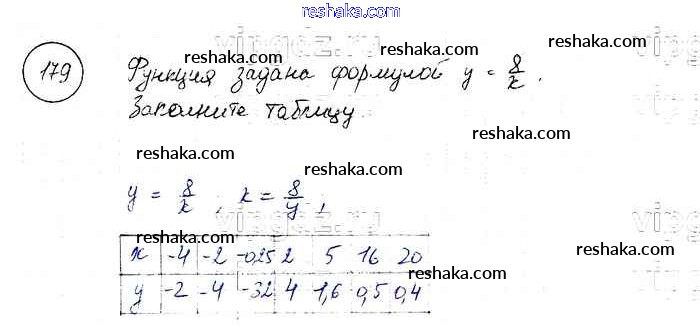 reshaka.com
vipgdz.ru
reshaka.com
reshaka.com
179
Функция задана формулой y = 8/x.
reshaka.com
Заполните таблицу.
reshaka.com
reshaka.com
reshaka.com
y = 8/x ; x = 8/y ;
reshaka.com
reshaka.com
x -4 -2 -0,25 2 5 16 20
reshaka.com
reshaka.com
y -2 -4 -32 4 1,6 0,5 0,4
reshaka.com